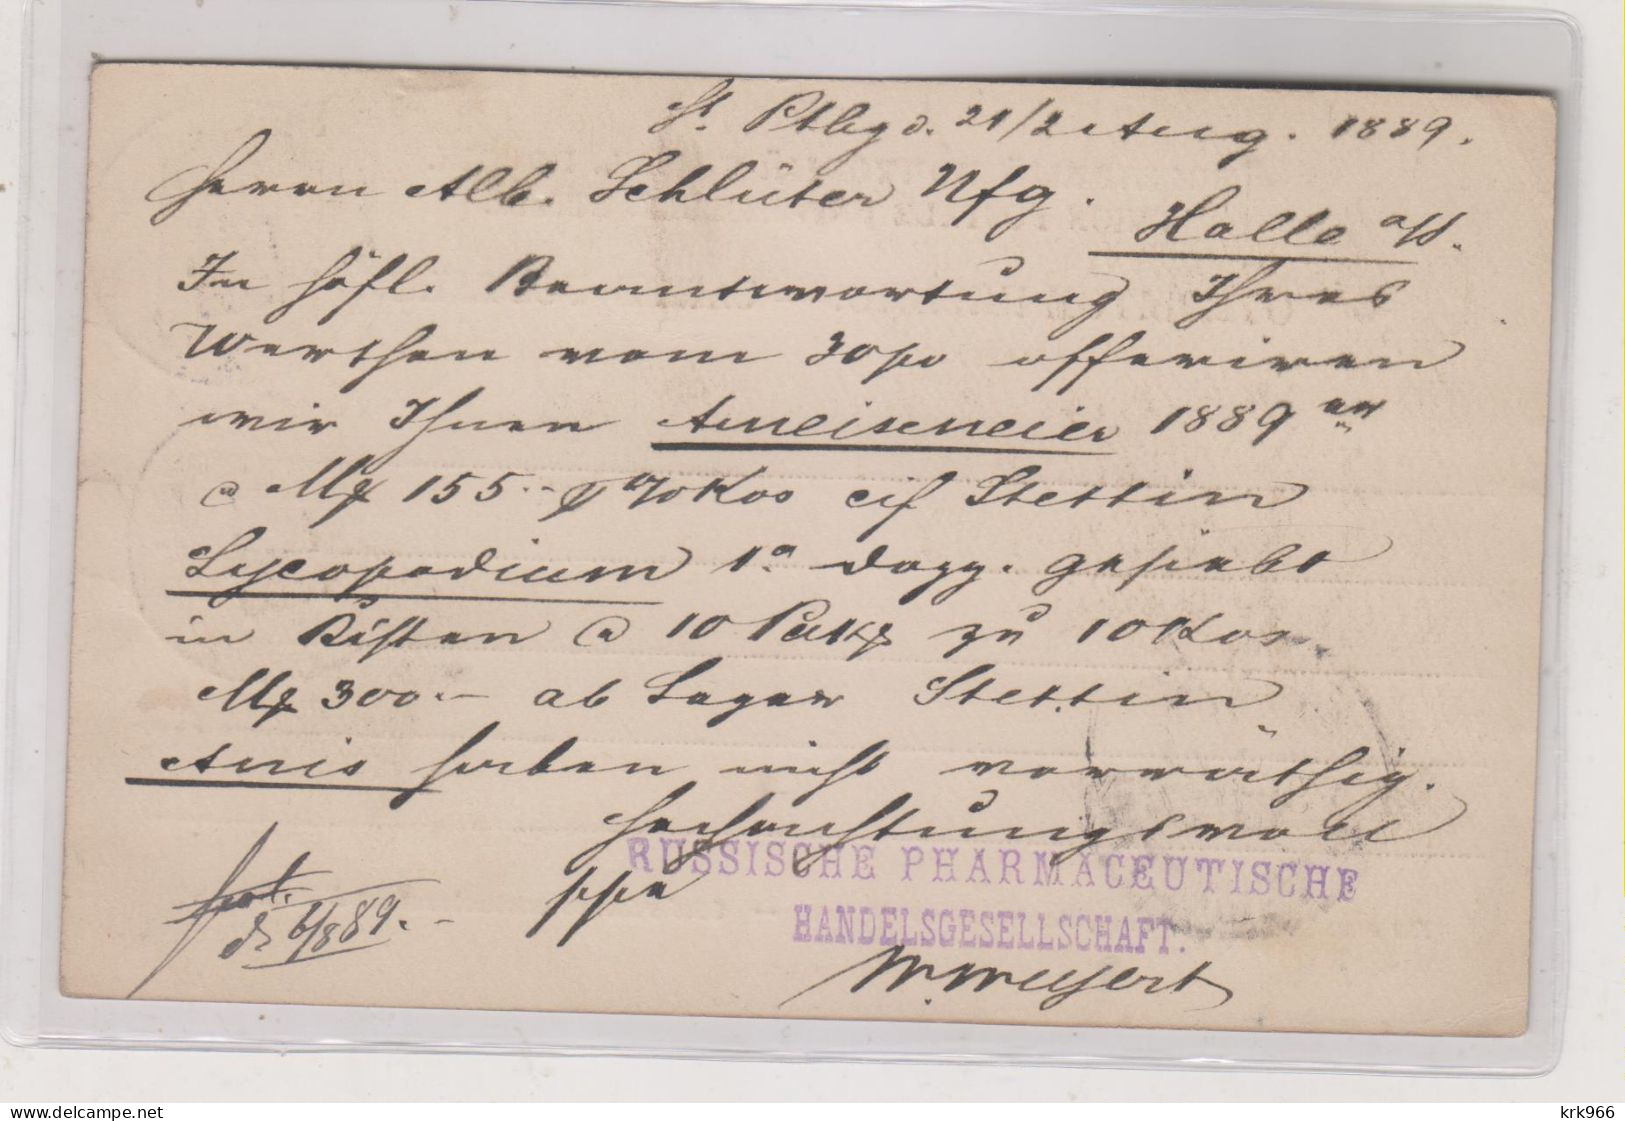 St. Ptbg d. 21/2 Aug. 1889.
Herrn Alb. Schlüter Nfg.
Halle a/S.
In höfl. Beantwortung Ihres
Werthen vom 30 po offeriren
wir Ihnen Ameiseneier 1889er
a Mk 155.- % Kos cif Stettin
Lycopodium 1a dopp. gesiebt
in Kisten a 10 Pak zu 10 Kos.
Mk 300.- ab Lager Stettin
Anis haben nicht vorräthig.
Hochachtungsvoll
RUSSISCHE PHARMACEUTISCHE
ppa
HANDELSGESELLSCHAFT.
d. 6/8 89.-
krk966
www.delcampe.net